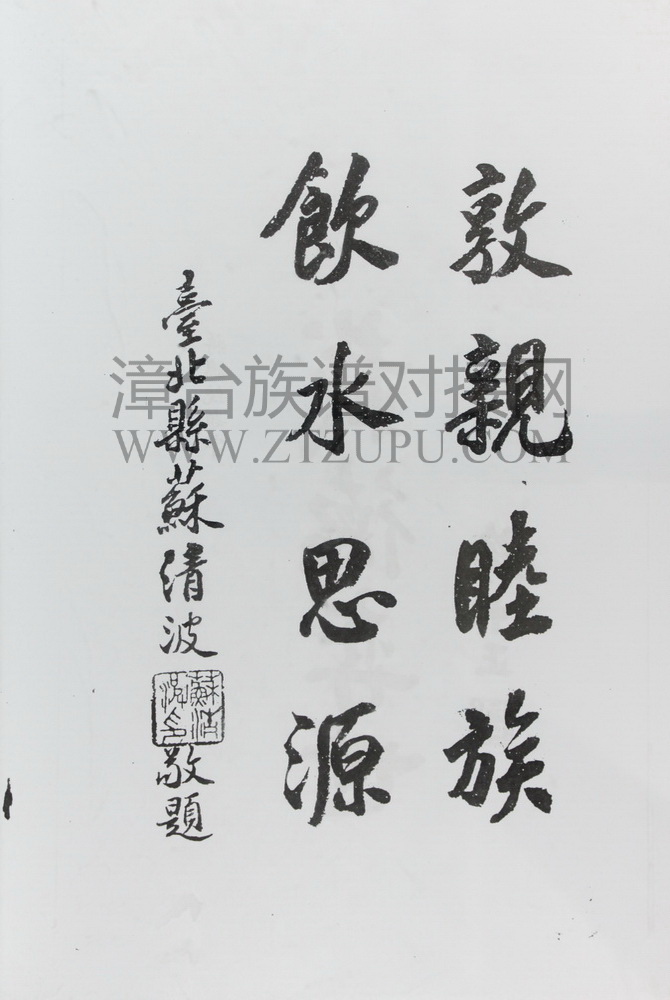 敦親睦族
飲水思源
臺北縣蘇清波
敬題
漳台族谱对接网
WWW.ZTZUPU.COM